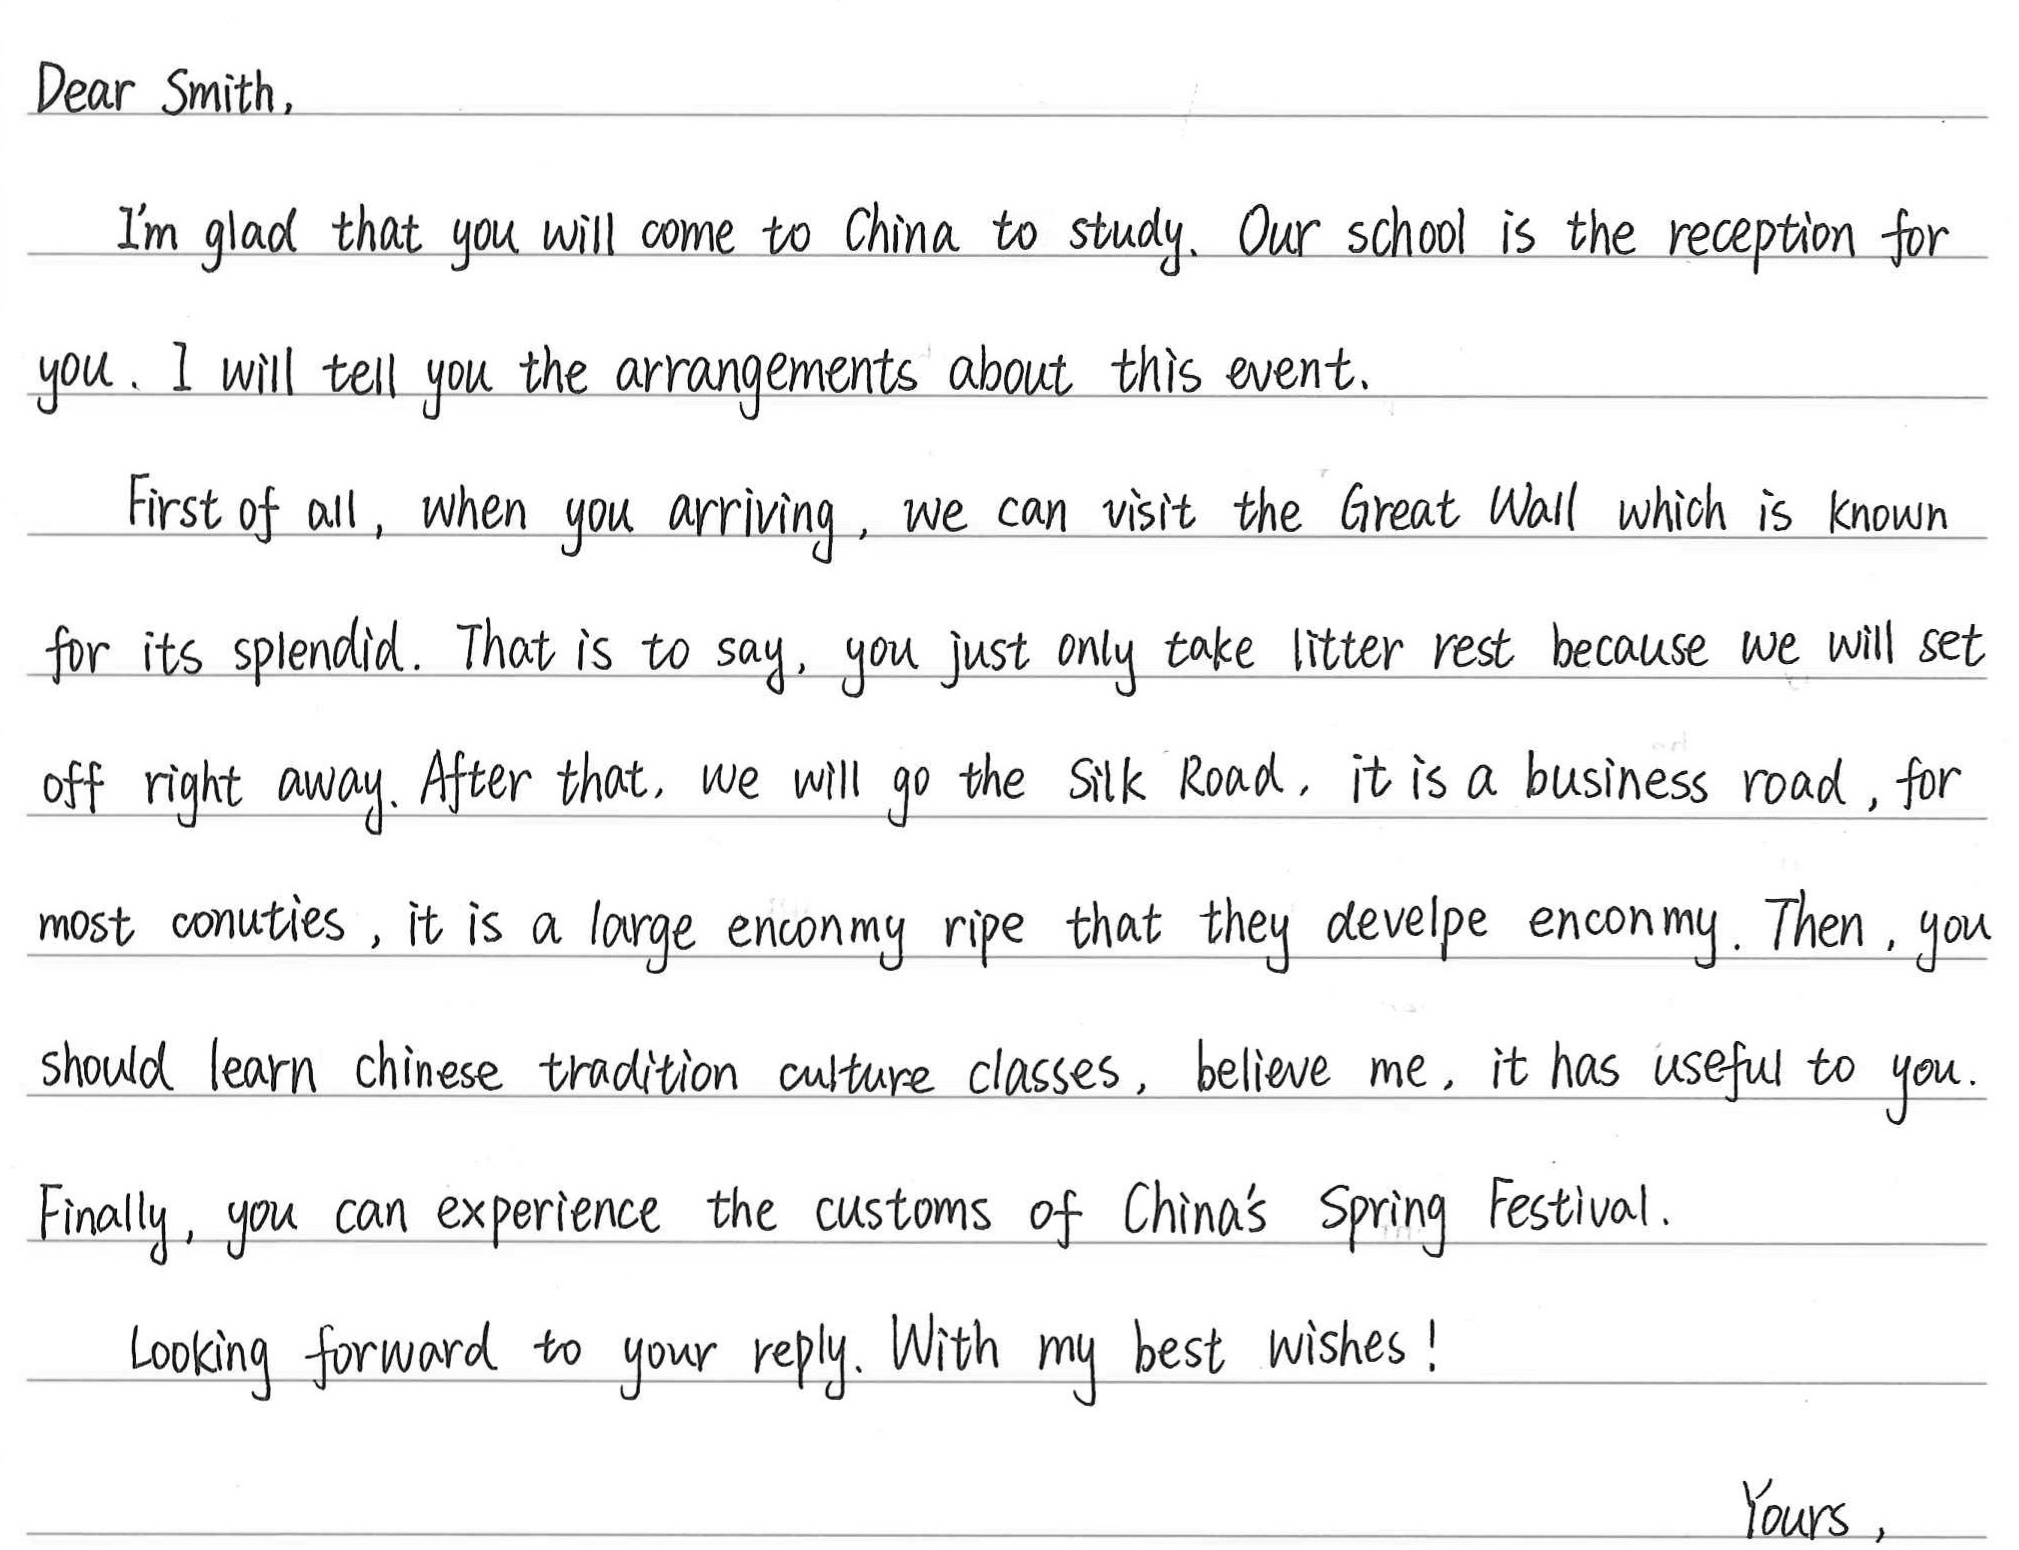 Dear Smith,
I'm glad that you will come to China to study. Our school is the reception for
you. I will tell you the arrangements about this event.
First of all, when you arriving, we can visit the Great Wall which is known
for its splendid. That is to say, you just only take litter rest because we will set
off right away. After that, we will go the Silk Road, it is a business road, for
most conuties, it is a large enconmy ripe that they develpe enconmy. Then, you
should learn chinese tradition culture classes, believe me, it has useful to you.
Finally, you can experience the customs of China's Spring Festival.
Looking forward to your reply. With my best wishes!
Yours,